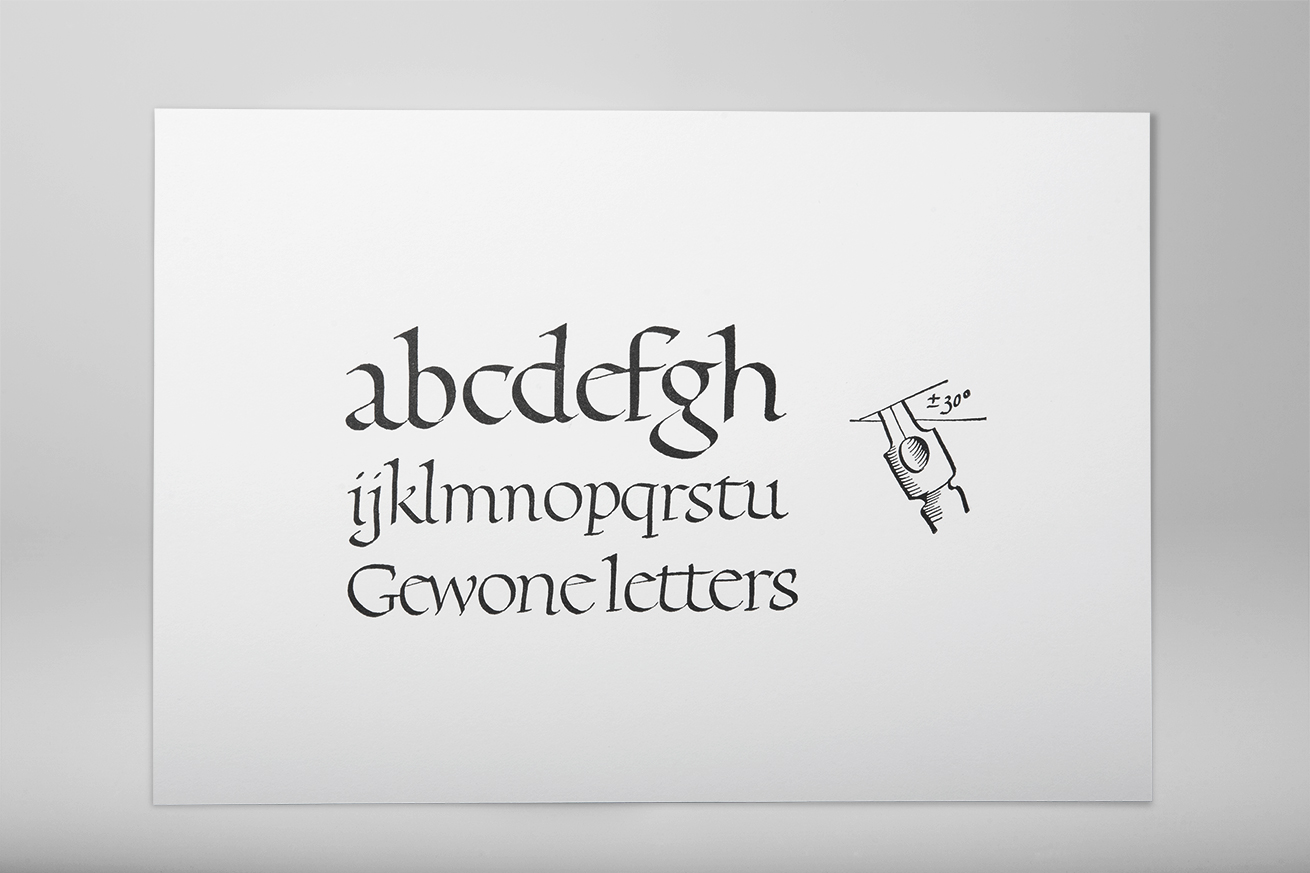 abcdefgh
ijklmnopqrstu
Gewone letters
±30°